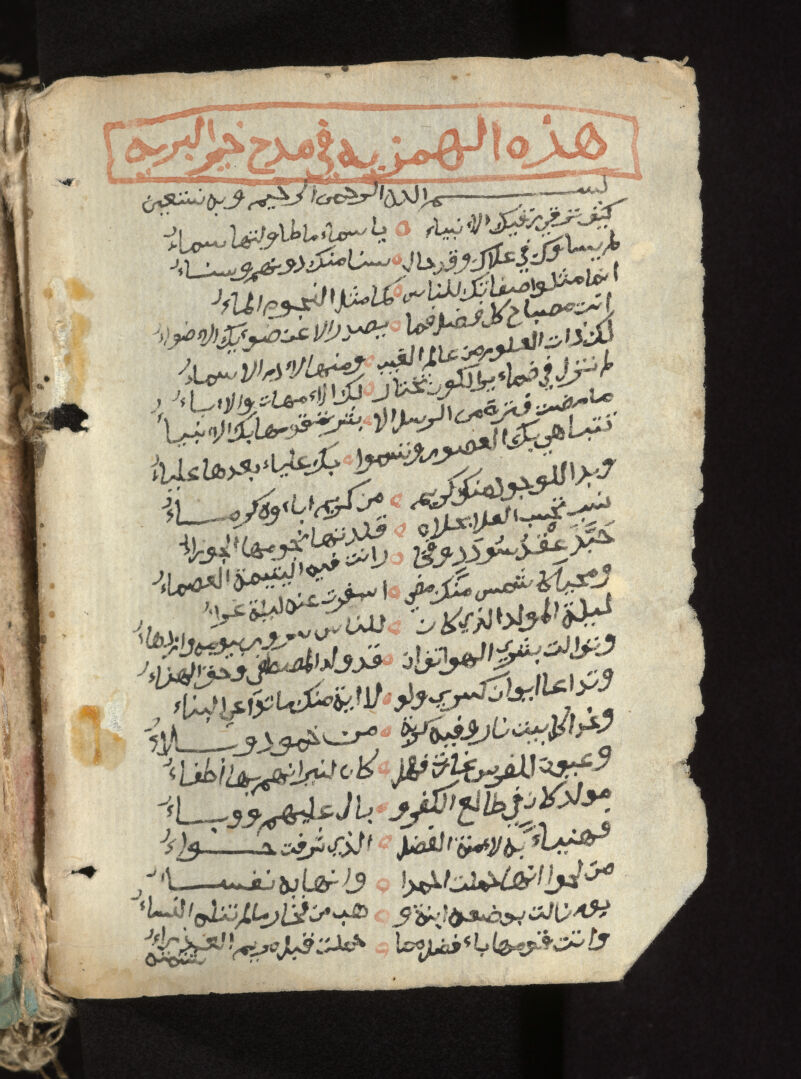 هذه الهمزيه في مدح خير البريه
بسم الله الرحمن الرحيم وبه نستعين
كيف ترقي رقيك الانبياء يا سماء ما طاولتها سماء
لم يساوك في علاك وقد حال سنا منك دونهم وسناء
انما مثلوا صفاتك للناس كما مثل النجوم الماء
انت مصباح كل فضل فما يصدر الا عن ضوءيك الاضواء
لك ذات العلوم من عالم الغيب ومنها لادم الاسماء
لم تزل في ضماءير الكون تختار لك الامهات والاباء
ما مضت فترة من الرسل الا بشرت قومها بك الانبياء
تتباهي بك العصور وتسموا بك علياء بعدها علياء
وبدا للوجود منك كريم من كريم اباءوه كرماء
نسب تحسب العلا بحلاه قلدتها نجومها الجوزاء
حبذ عقد سودد وفخار انت فيه اليتيمة العصماء
ومحيا كا شمس منك مضي اسفرت عنه ليلة غراء
ليلة المولد الذي كان للناس سرور بيومه وازدهاء
وتوالت بشري الهواتف ان قد ولد المصطفي وحق الهناء
وتداعا ايوان كسري ولو لا اية منك ما تداعي البناء
وغدا كل بيت نار وفيه كربة من خمود وبلاء
وعيون للفرس غارت فهل كان لنيرانهم بها أطفاء
مولد كان في طالع الكفر و بال عليهم ووباء
فهنياء به لامنة الفضل الذي شرفت حواء
من لحوا انها حملت احمدا وانها به نفساء
يوم نالت بوضعه ابنة و هب من فخار مالم تنله النساء
واتت قومها باء فضل مما حملت قبل مريم العذراء